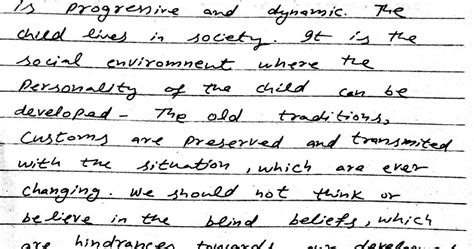 is progressive and dynamic. The
child lives in society. It is the
social enviromnent where the
Personality of the child can be
developed - The old traditions,
Customs are preserved and transmited
with the situation, which are ever
changing. We should not think or
believe in the blind beliefs, which
are hindrances towards our